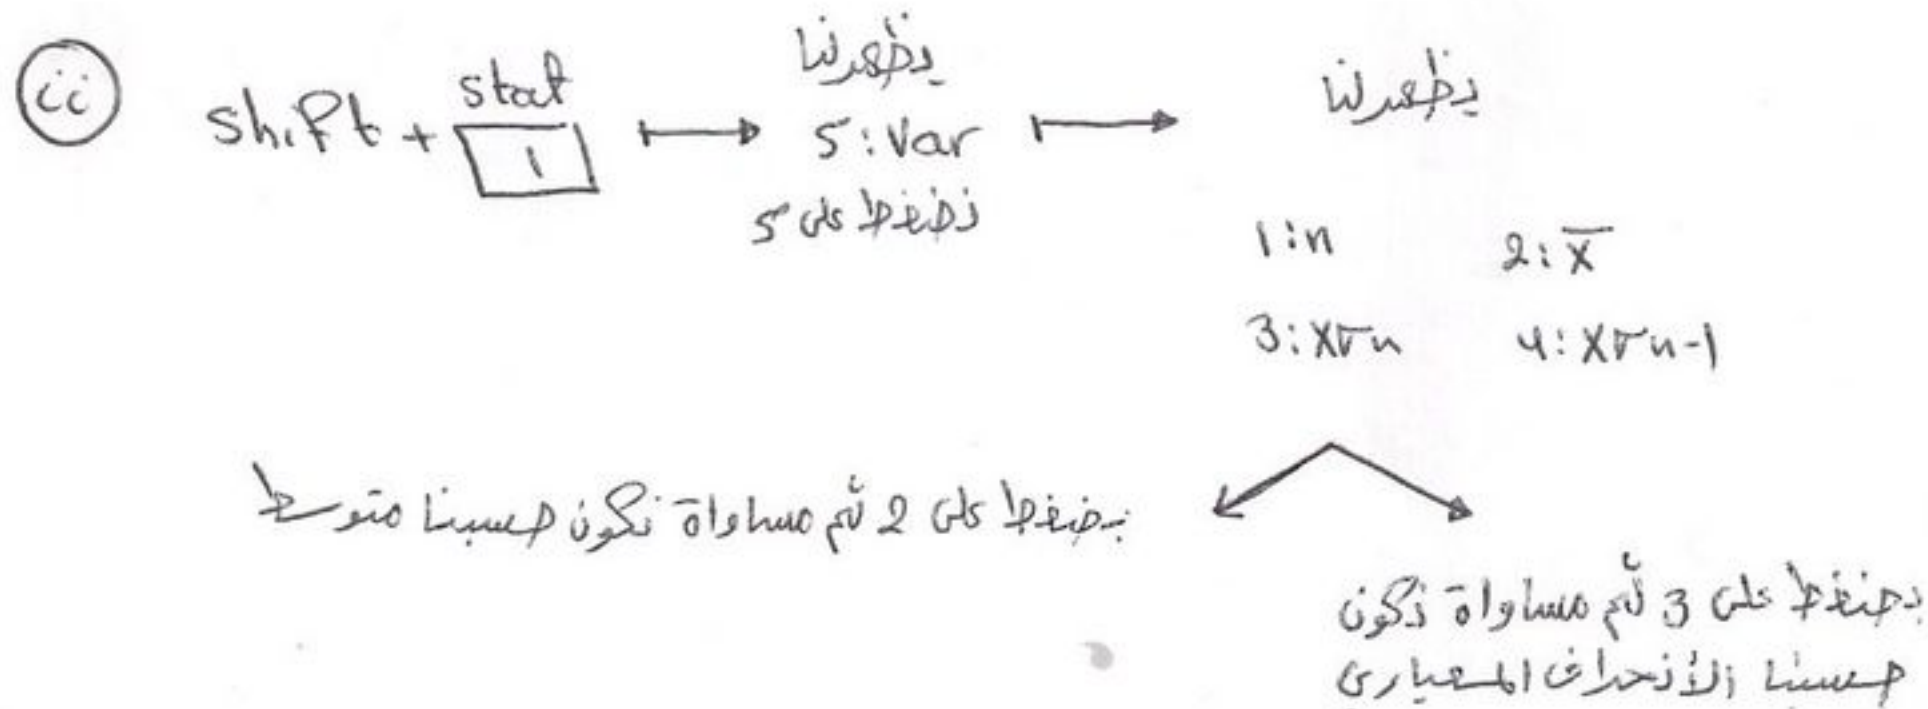 ii
Shift + stat 1
يظهر لنا
5: Var
نضغط على 5
يظهر لنا
1: n 2: x̄
3: xσn 4: xσn-1
بضغط على 2 ثم مساواة نكون حسبنا متوسط
بضغط على 3 ثم مساواة نكون
حسبنا الأنحراف المعيارى